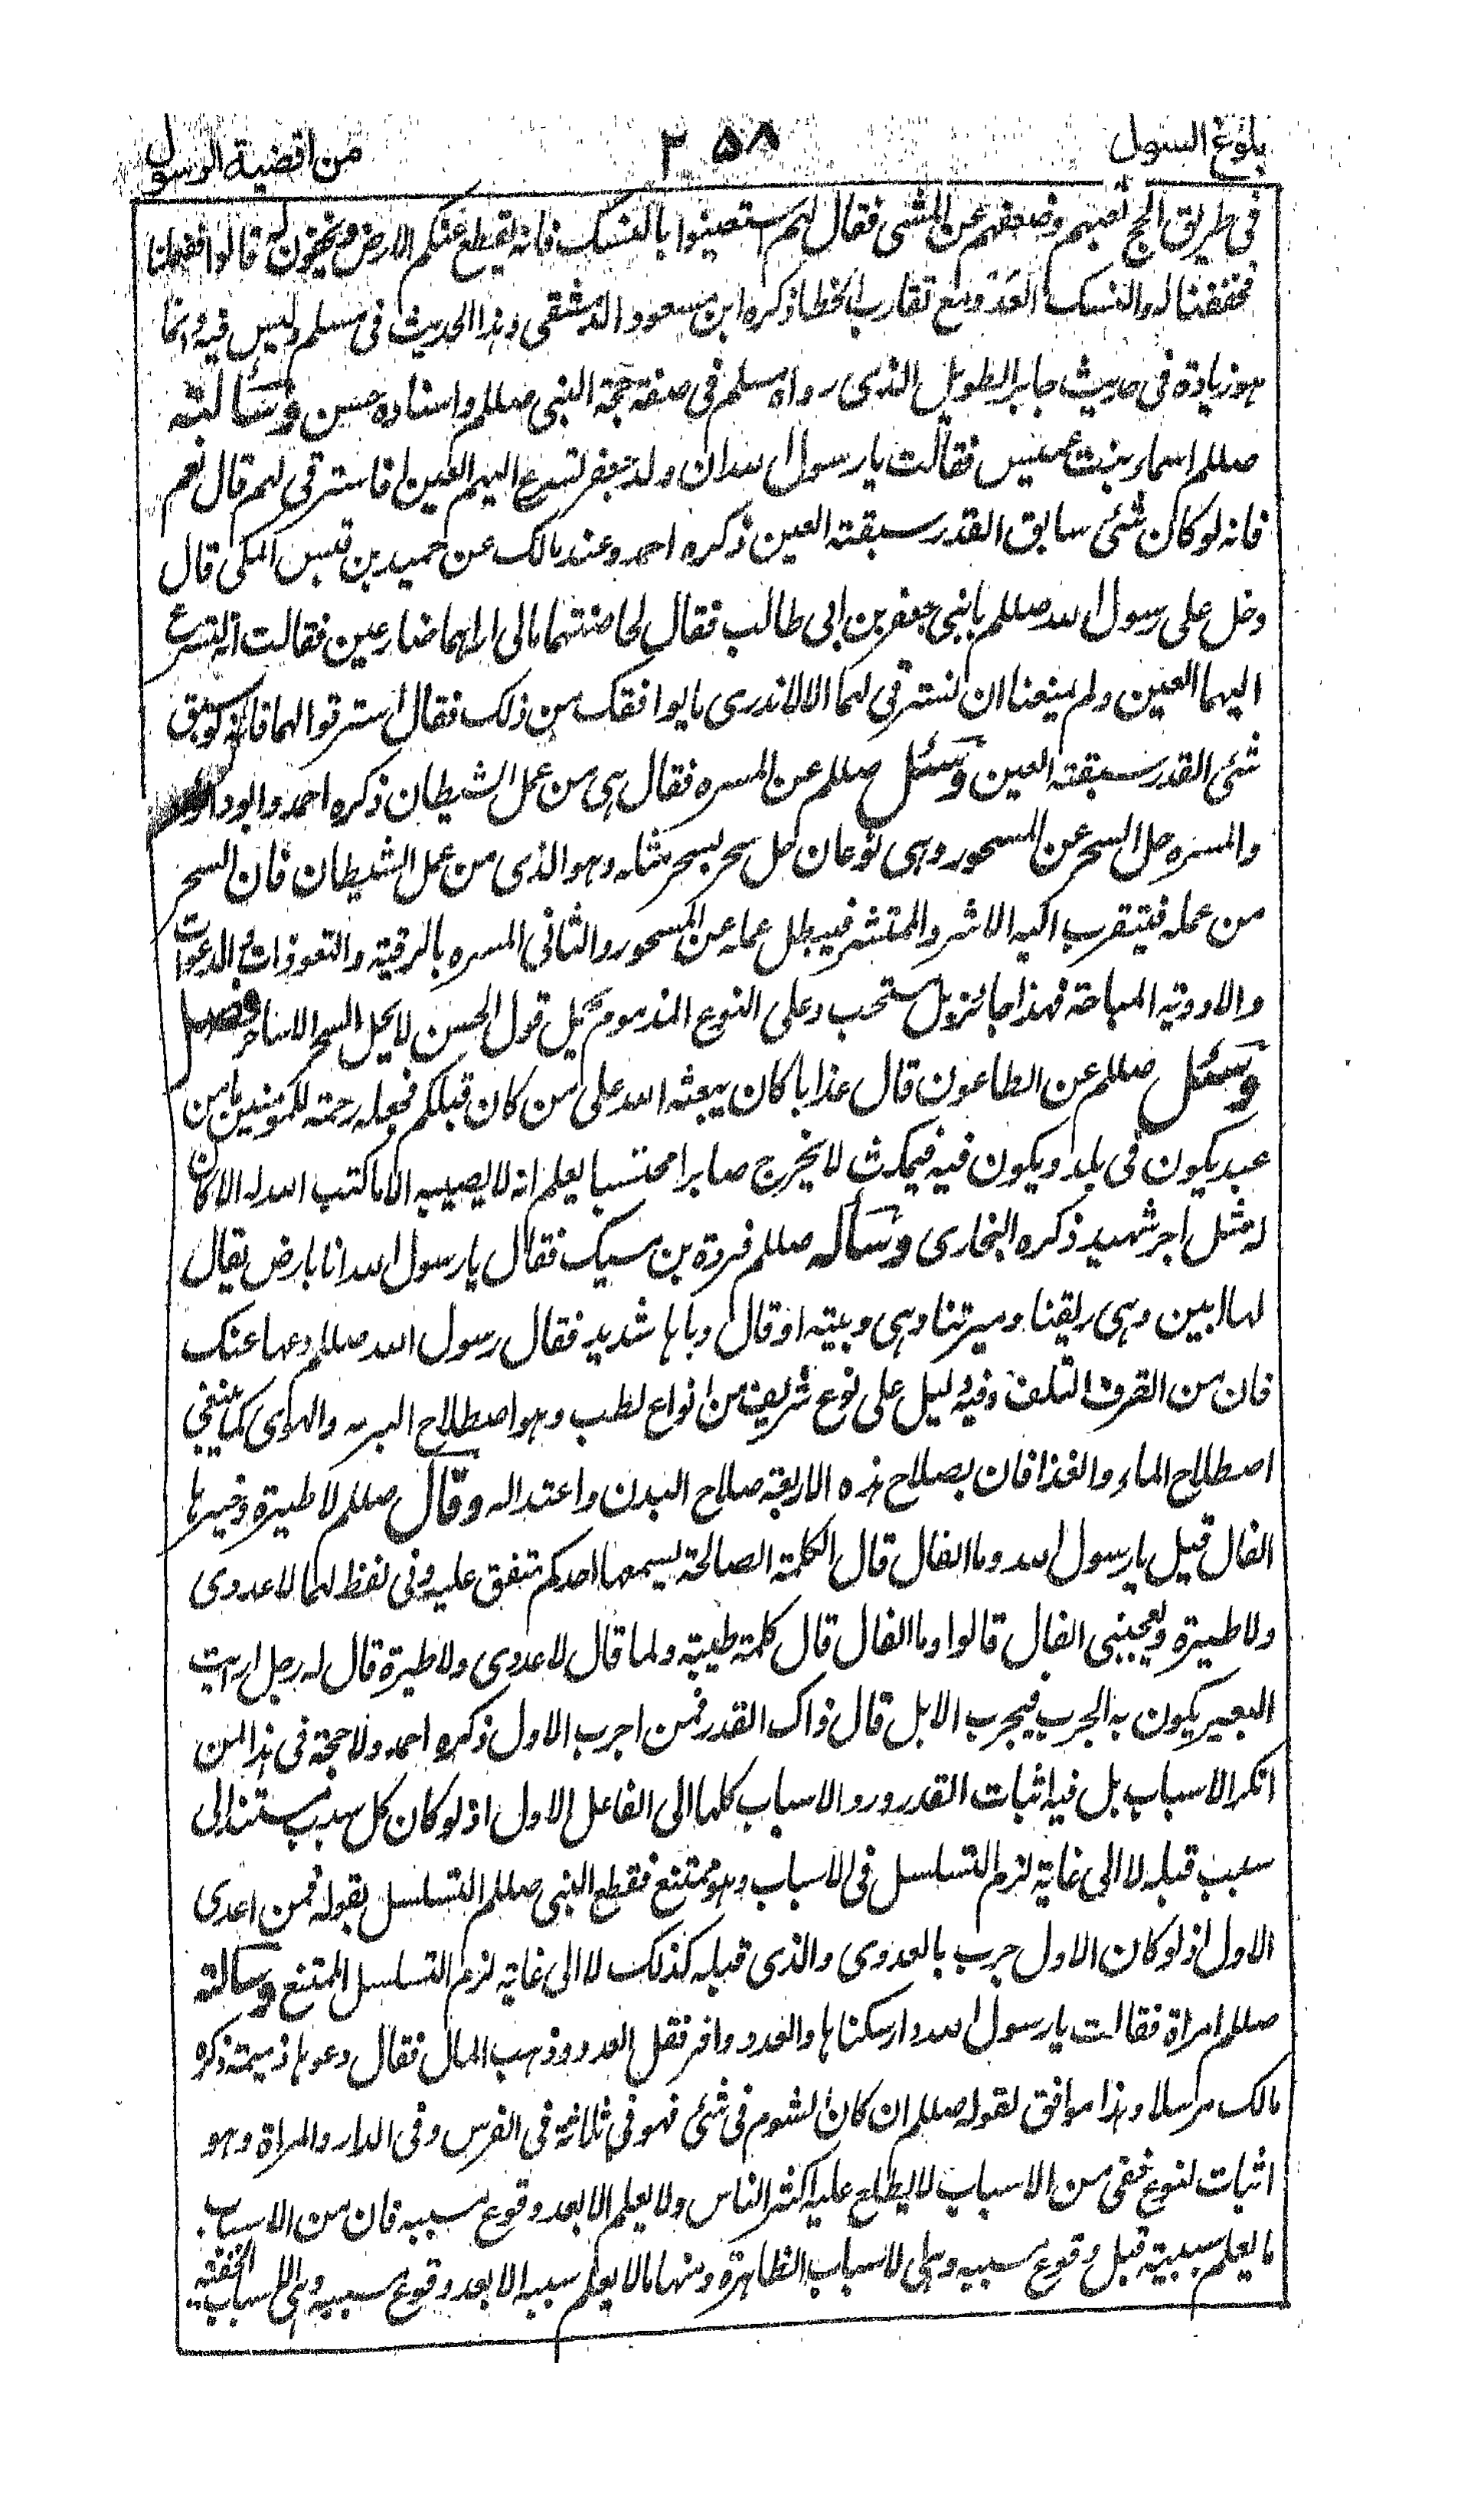 بلوغ السول
٢٥٨
من اقضية الرسول
فى طريق الحج تعبهم وضعفهم عن المشى فقال لهم استعينوا بالنسك فانه يقطع عنكم الارض وتخفون له قالوا ففعلنا
فخففنا له والنسك العدو مع تقارب الخطا ذكره ابن مسعود الدمشقى وهذا الحديث فى مسلم وليس فيه انما
هو زيادة فى حديث جابر الطويل الذى رواه مسلم فى صفة حجة النبى صللم واسناده حسن وسألته
صللم اسماء بنت عميس فقالت يا رسول الله ان ولد جعفر لتسرع اليهم العين افاسترقى لهم قال نعم
فانه لو كان شئى سابق القدر سبقته العين ذكره احمد وعند مالك عن حميد بن قيس المكى قال
دخل على رسول الله صللم بابنى جعفر بن ابى طالب فقال لحاضنتهما مالى اراهما ضارعين فقالت انه لتسرع
اليهما العين ولم يمنعنا ان نسترقى لهما الا لاندرى ما يوافقك من ذلك فقال استرقوا لهما فانه لو سبق
شئى القدر سبقته العين وسئل صللم عن المسره فقال هى من عمل الشيطان ذكره احمد وابوداود
والمسره حل السحر عن المسحور وهى نوعان حل سحر بسحر مثله وهو الذى من عمل الشيطان فان السحر
من عمله فيتقرب اليه الاشر والمتشر فيبطل عمله عن المسحور والثانى المسره بالرقية والتعوذات والدعوات
والادوية المباحة فهذا جائز بل مستحب وعلى النوع المذموم يحمل قول الحسن لا يحل السحر الا ساحر فصل
وسئل صللم عن الطاعون قال عذابا كان يبعثه الله على من كان قبلكم فجعله رحمة للمؤمنين ما من
عبد يكون فى بلد ويكون فيه فيمكث لا يخرج صابرا محتسبا يعلم انه لا يصيبه الا ما كتب الله له الا كان
له مثل اجر شهيد ذكره البخارى وسأله صللم فروة بن مسيك فقال يا رسول الله انا بارض يقال
لها ابين وهى ريقنا وميرتنا وهى وبيته او قال وباها شديد فقال رسول الله صللم دعها عنك
فان من القرف التلف وفيه دليل على نوع شريف من انواع لطب وهو اصطلاح البريه والهوى كما ينبغى
اصطلاح الماء والغذا فان بصلاح هذه الاربعة صلاح البدن واعتداله وقال صللم لا طيرة وخيرها
الفال قيل يا رسول الله وما الفال قال الكلمة الصالحة يسمعها احدكم متفق عليه وفى لفظ لهما لا عدوى
ولا طيرة ويعجبنى الفال قالوا وما الفال قال كلمة طيبة ولما قال لا عدوى ولا طيرة قال له رجل ارايت
البعير يكون به الجرب فيجرب الابل قال ذاك القدر فمن اجرب الاول ذكره احمد ولا حجة فى هذا لمن
انكر الاسباب بل فيه اثبات القدر ورد الاسباب كلها الى الفاعل الاول اذ لو كان كل سبب مستندا الى
سبب قبله لا الى غاية لزم التسلسل فى الاسباب وهو ممتنع فقطع النبى صللم التسلسل بقوله فمن اعدى
الاول اذ لو كان الاول جرب بالعدوى والذى قبله كذلك لا الى غاية لزم التسلسل الممتنع وسألته
صللم امراة فقالت يا رسول الله دار سكناها والعدد وافر فقل العدد وذهب المال فقال دعوها ذميمة ذكره
مالك مرسلا وهذا موافق لقوله صللم ان كان الشوم فى شئى فهو فى ثلاثة فى الفرس وفى الدار والمراة وهو
اثبات لنوع خفى من الاسباب لا يطلع عليه اكثر الناس ولا يعلم الا بعد وقوع مسببه فان من الاسباب
ما يعلم سببيته قبل وقوع مسببه وهى لاسباب الظاهرة ومنها ما لا يعلم سببه الا بعد وقوع مسببه وهى الاسباب الخفية